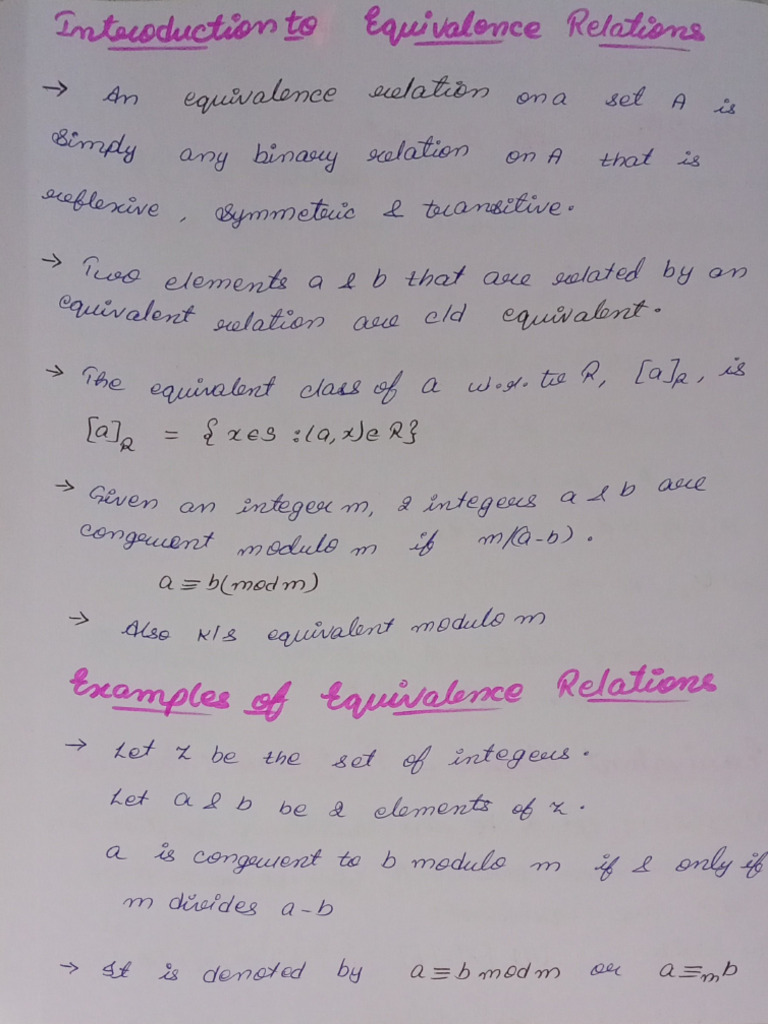 Introduction to Equivalence Relations
→ An equivalence relation on a set A is
simply any binary relation on A that is
reflexive, symmetric & transitive.
→ Two elements a & b that are related by an
equivalent relation are c/d equivalent.
→ The equivalent class of a w.r.to R, [a]R, is
[a]R = {x∈S : (a,x)∈R}
→ Given an integer m, 2 integers a & b are
congruent modulo m if m/(a-b).
a ≡ b(mod m)
→ Also K/s equivalent modulo m
Examples of Equivalence Relations
→ Let Z be the set of integers.
Let a & b be 2 elements of Z.
a is congruent to b modulo m if & only if
m divides a-b
→ It is denoted by a ≡ b mod m or a ≡m b